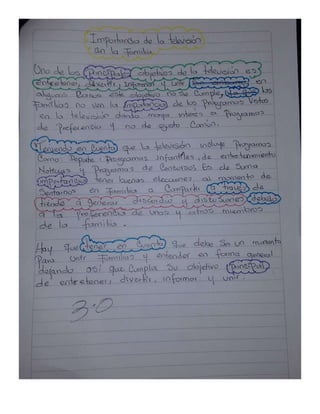 Importancia de la televisión
en la Familia
Uno de los principales objetivos de la televisión es
entretener, divertir, informar y unir en
algunos casos este objetivo no se cumple, las
familias no ven la importancia de los Programas vistos
en la televisión dando mayor interes a Programas
de Preferencia y no de gusto Común.
Teniendo en cuenta que la televisión incluye Programas
Como: Deporte, Programas infantiles, de entretenimiento
Noticias y Programas de Concursos Es de Suma
importancia tener buenas elecciones al momento de
Sentarnos en Familia a Compartir a través de
tiende a generar discordia y discusiones debido
a la Preferencia de unos y otros miembros
de la familia.
Hay que tener en cuenta que debe Ser un momento
Para unir Familias y entender en forma general
dejando así que Cumpla Su objetivo principal
de entretener, divertir, informar y unir.
3.0